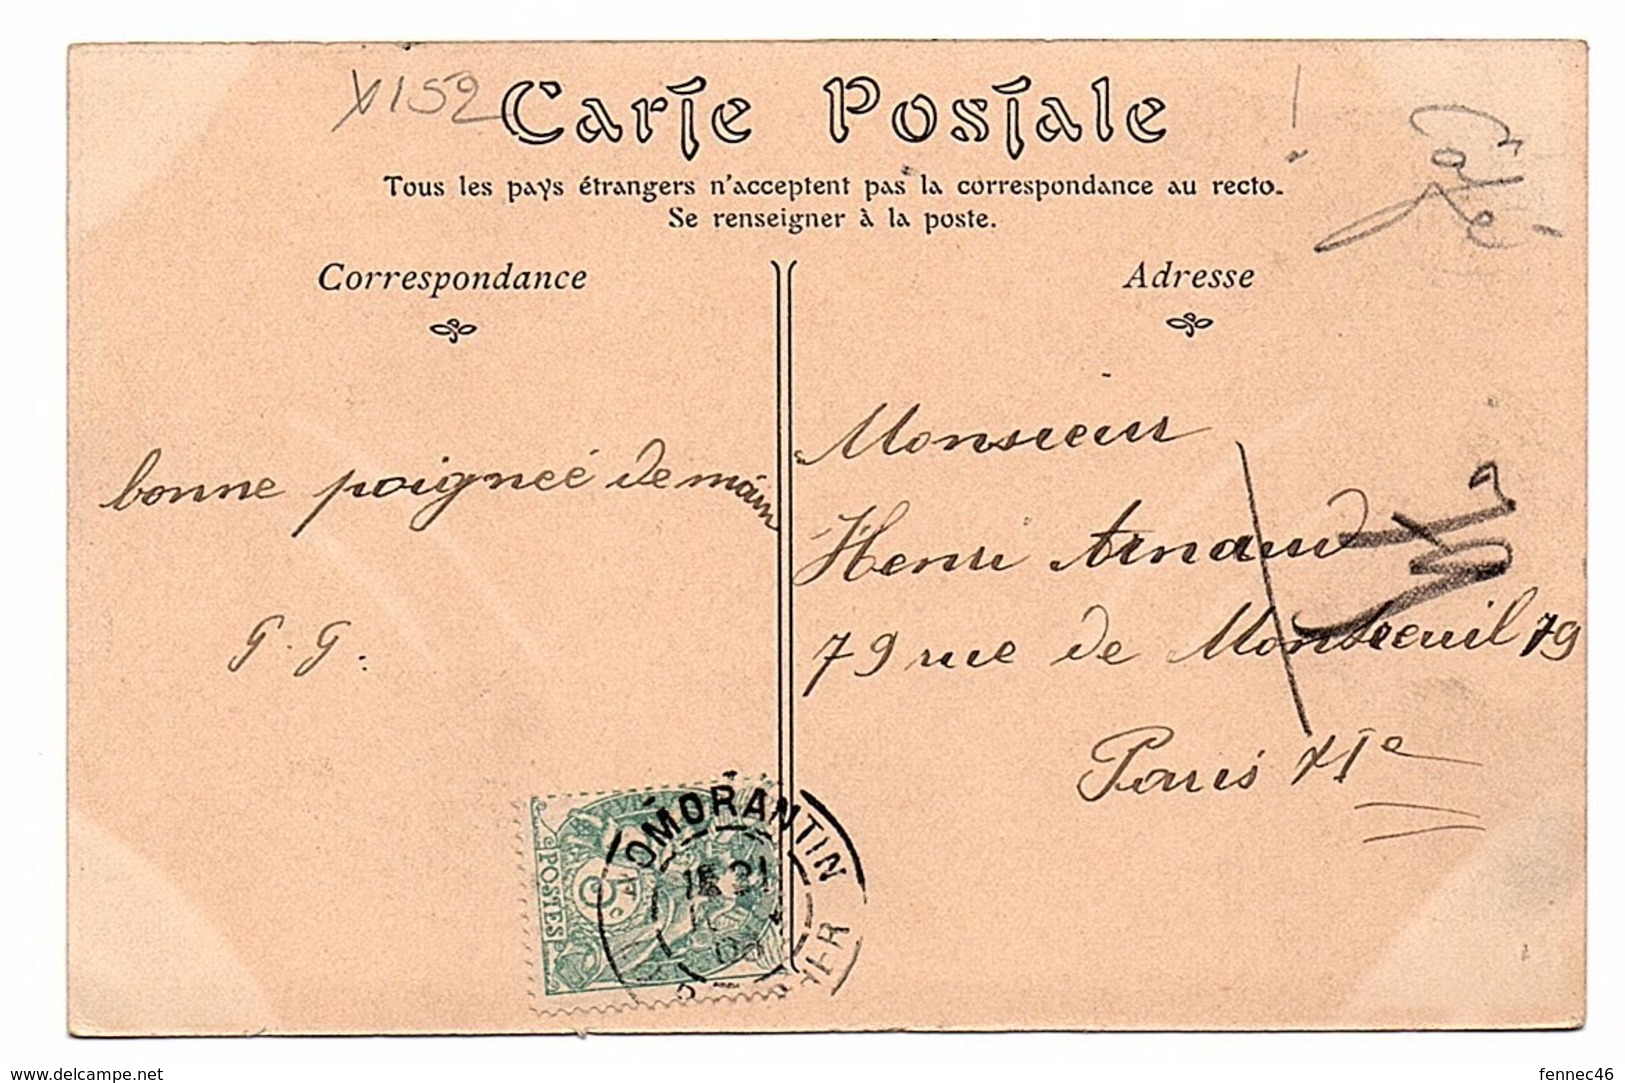 Carte Postale
Tous les pays étrangers n'acceptent pas la correspondance au recto.
Se renseigner à la poste.
Correspondance
Adresse
bonne poigneé de main
G. G.
Monsieur
Henri Arnaud
79 rue de Montreuil 79
Paris XIe
ROMORANTIN
POSTES
5c
www.delcampe.net
fennec46